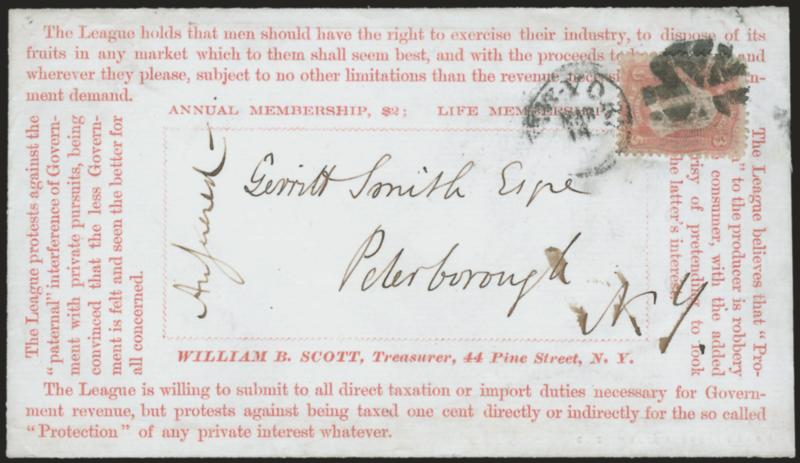 The League holds that men should have the right to exercise their industry, to dispose of its
fruits in any market which to them shall seem best, and with the proceeds to and
wherever they please, subject to no other limitations than the revenue
ment demand.
ANNUAL MEMBERSHIP, $2; LIFE
The League protests against the
"paternal" interference of Govern-
ment with private pursuits, being
convinced that the less Govern-
ment is felt and seen the better for
all concerned.
Answered
Gerritt Smith Esqe
Peterborough
N Y
The League believes that "Pro-
to the producer is robbery
consumer, with the added
of pretending to look
the latter's interest
WILLIAM B. SCOTT, Treasurer, 44 Pine Street, N. Y.
The League is willing to submit to all direct taxation or import duties necessary for Govern-
ment revenue, but protests against being taxed one cent directly or indirectly for the so called
"Protection" of any private interest whatever.